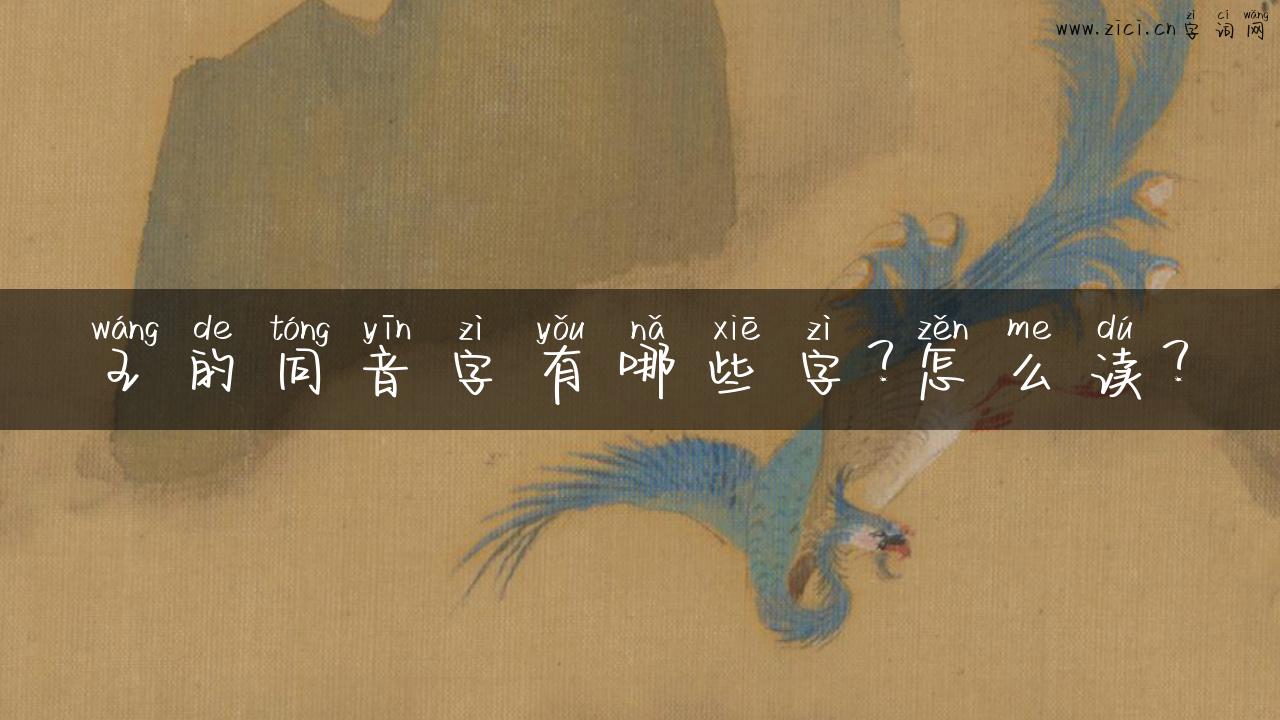 zì cí wǎng
www.zici.cn 字词网
wáng de tóng yīn zì yǒu nǎ xiē zì zěn me dú
王的同音字有哪些字?怎么读?